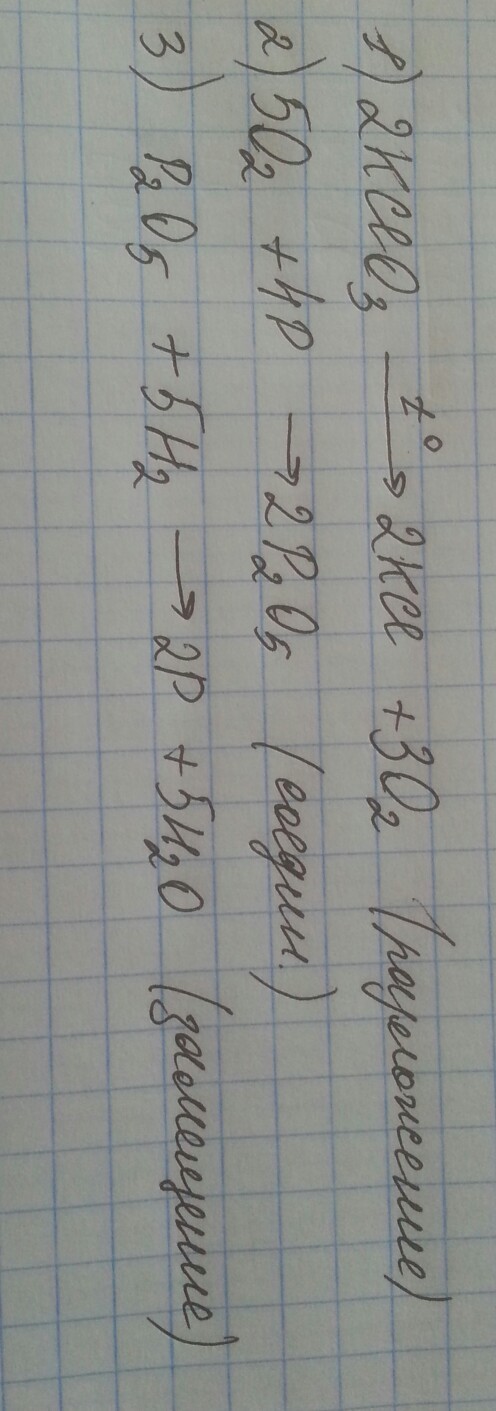 1) 2KClO₃ —t°→ 2KCl + 3O₂ (разложение)
2) 5O₂ + 4P → 2P₂O₅ (соедин.)
3) P₂O₅ + 5H₂ → 2P + 5H₂O (замещение)